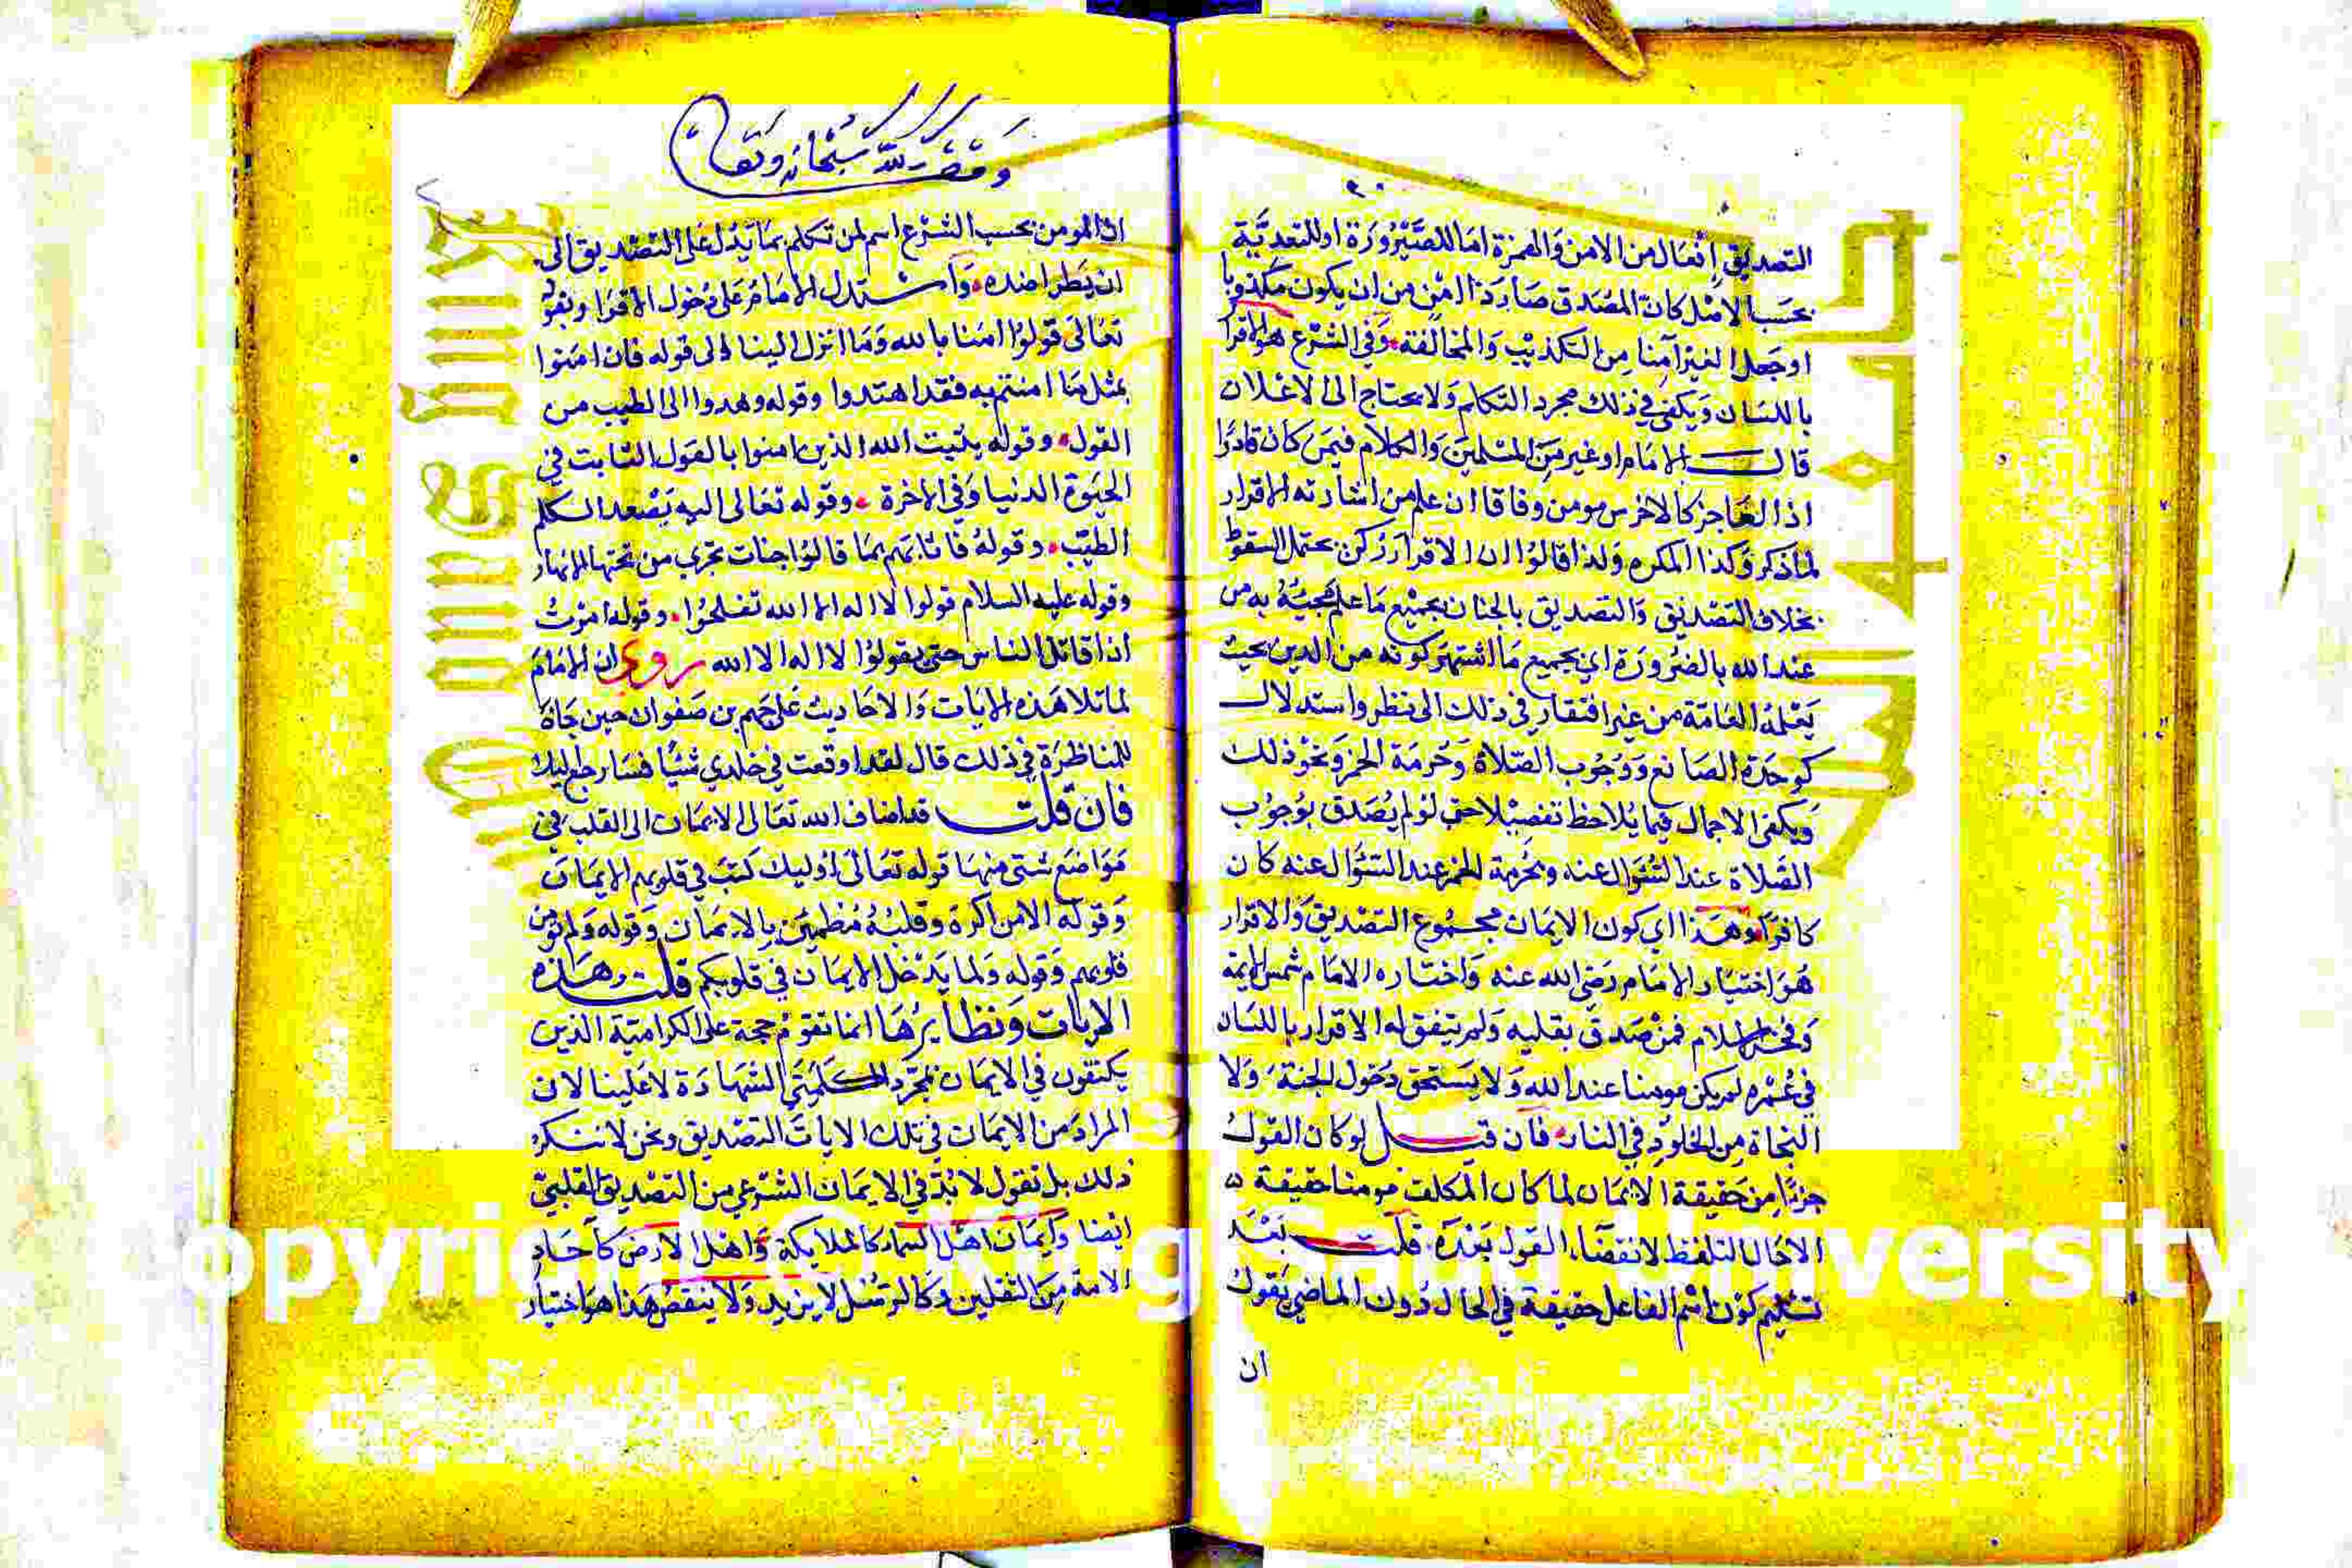 التصديق إفعال من الامن والهمزة اما للصيرورة او للتعدية
بحسب الاصل كان المصدق صار ذا امن من ان يكون مكذوبا
او جعل الغير آمنا من التكذيب والمخالفة وفي الشرع هو الاقرار
باللسان ويكفي في ذلك مجرد التكلم ولا يحتاج الى الاعلان
قال الامام او غير من المسلمين والكلام فيمن كان قادرا
اذ العاجز كالاخرس مومن وفاقا ان علم من اشارته الاقرار
لما ذكر وكذا المكره ولذا قالوا ان الاقرار ركن يحتمل السقوط
بخلاف التصديق والتصديق بالجنان بجميع ما علم مجيئه به من
عند الله بالضرورة اي بجميع ما اشتهر كونه من الدين بحيث
يعلمه العامة من غير افتقار في ذلك الى نظر واستدلال
كوحدة الصانع ووجوب الصلاة وحرمة الخمر ونحو ذلك
ويكفي الاجمال فيما يلاحظ تفصيلا حتى لو لم يصدق بوجوب
الصلاة عند السؤال عنه وبحرمة الخمر عند السؤال عنه كان
كافرا وهذا اي كون الايمان مجموع التصديق والاقرار
هو اختيار الامام رضي الله عنه واختاره الامام شمس الايمة
وفخر الاسلام فمن صدق بقلبه ولم يتفق له الاقرار باللسان
في عمره لم يكن مومنا عند الله ولا يستحق دخول الجنة ولا
النجاة من الخلود في النار فان قيل لو كان القول
جزءا من حقيقة الايمان لما كان المكلف مومنا حقيقة
الا حال التلفظ لانقضاء القول بعده قلت بعد
تسليم كون اسم الفاعل حقيقة في الحال دون الماضي يقول
ان
وقف لله سبحانه وتعالى
ان المومن بحسب الشرع اسم لمن تكلم بما يدل على التصديق الى
ان يطرا ضده واستدل الامام على دخول الاقرار وبقوله
تعالى قولوا امنا بالله وما انزل الينا الى قوله فان امنوا
بمثل ما امنتم به فقد اهتدوا وقوله وهدوا الى الطيب من
القول وقوله يثبت الله الذين امنوا بالقول الثابت في
الحيوة الدنيا وفي الاخرة وقوله تعالى اليه يصعد الكلم
الطيب وقوله فاثابهم بما قالوا جنات تجري من تحتها الانهار
وقوله عليه السلام قولوا لا اله الا الله تفلحوا وقوله امرت
ان اقاتل الناس حتى يقولوا لا اله الا الله روي ان الامام
لما تلا هذه الايات والاحاديث على جهم بن صفوان حين جاه
للمناظرة في ذلك قال لقد اوقعت في خلدي شيئا فسارجع اليك
فان قلت قد اضاف الله تعالى الايمان الى القلب في
مواضع شتى منها قوله تعالى اوليك كتب في قلوبهم الايمان
وقوله الا من اكره وقلبه مطمئن بالايمان وقوله ولم تومن
قلوبهم وقوله ولما يدخل الايمان في قلوبكم قلت وهذه
الايات ونظايرها انما تقوم حجة على الكرامية الذين
يكتفون في الايمان بمجرد كلمتي الشهادة لا علينا لان
المراد من الايمان في تلك الايات التصديق ونحن لا ننكره
ذلك بل نقول لا بد في الايمان الشرعي من التصديق القلبي
ايضا وايمان اهل السماء كالملايكة واهل الارض كآحاد
الامة من الثقلين وكالرسل لا يزيد ولا ينقص هذا هو اختيار
Copyright © King Saud University